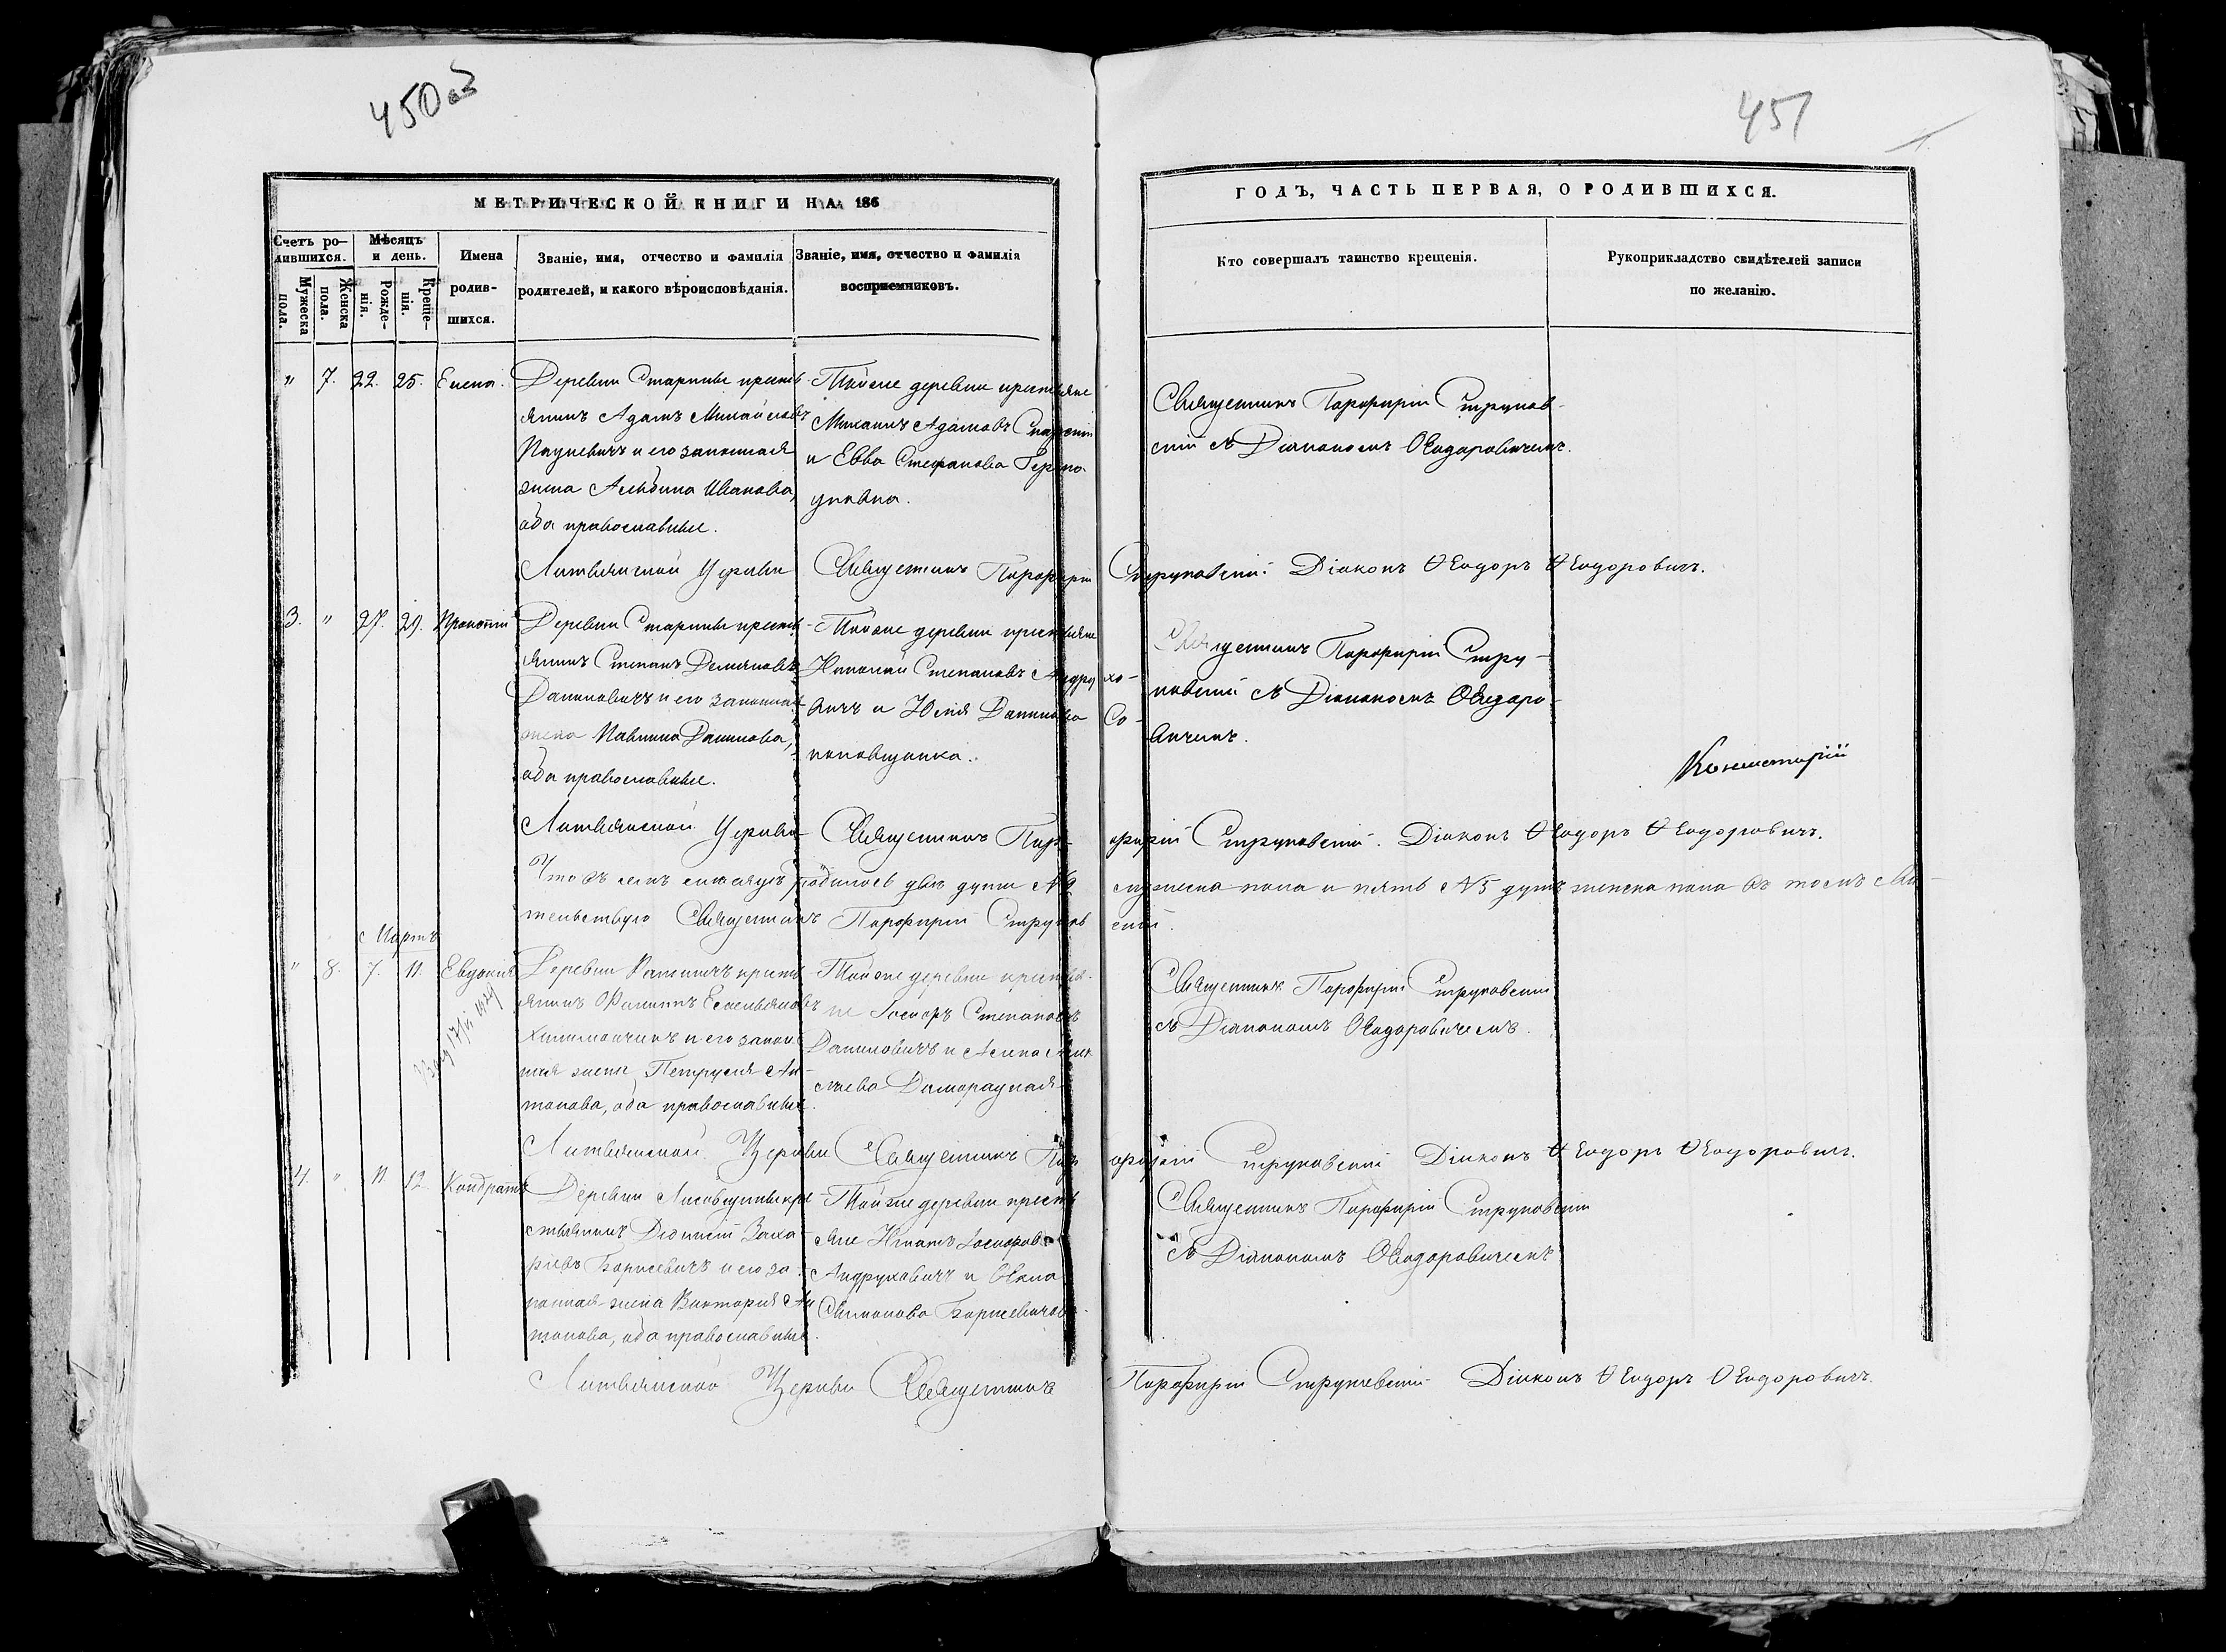 450 об
451
МЕТРИЧЕСКОЙ КНИГИ НА 186
ГОДЪ, ЧАСТЬ ПЕРВАЯ, О РОДИВШИХСЯ.
Счетъ ро-
дившихся.
Мужеска пола.
Женска пола.
Мѣсяцъ
и день.
Рожде-
нія.
Креще-
нія.
Имена
родив-
шихся.
Званіе, имя, отчество и фамилія
родителей, и какого вѣроисповѣданія.
Званіе, имя, отчество и фамилія
восприемниковъ.
Кто совершалъ таинство крещенія.
Рукоприкладство свидѣтелей записи
по желанію.
" 7. 22. 25. Елена.
Деревни Старины кресть
янинъ Адамъ Михайловъ
и его законная
жена Альбина Иванова,
оба православные.
Тойже деревни крестьяне
Михаилъ Адамовъ
и Евва Стефанова
Священникъ Порфирій Струков-
скій съ Діакономъ Ѳеодоровичемъ.
Литвянской Церкви Священникъ Порфирій Струковскій Діаконъ Ѳеодоръ Ѳеодоровичъ.
3. " 27. 29. Прокопій
Деревни Старины кресть
янинъ Степанъ Демяновъ
Даниловичъ и его законная
жена Павлина Данилова,
оба православные.
Тойже деревни крестьяне
Николай Степановъ Андрухо-
вичъ и Юлія Данилова Со-
Священникъ Порфирій Стру-
ковскій съ Діакономъ Ѳеодоро-
вичемъ.
Консисторіи
Литвянской Церкви Священникъ Порфирій Струковскій. Діаконъ Ѳеодоръ Ѳеодоровичъ.
Что въ семъ мѣсяцѣ родилось двѣ души №2 мужеска пола и пять №5 душъ женска пола въ томъ сви-
тельствую Священникъ Порфирій Струковскій.
Мартъ
" 8. 7. 11. Евдокія
Деревни кресть
янинъ Филиппъ Емельяновъ
и его закон
ная жена Петруся Ан-
тонова, оба православные.
Тойже деревни крестья-
не Іосифъ Степановъ
Даниловичъ и Анна
Священникъ Порфирій Струковскій
съ Діакономъ Ѳеодоровичемъ.
Литвянской Церкви Священникъ Порфирій Струковскій Діаконъ Ѳеодоръ Ѳеодоровичъ.
4. " 11 12. Кондратъ
Деревни Лисовщины кре
стьянинъ Діонисій Заха
ріевъ Борисевичъ и его за
конная жена Викторія Ан
тонова, оба православные.
Тойже деревни кресть
яне Игнатъ Іосифовъ
Андруховичъ и Ѳекла
Симонова Борисевичова
Священникъ Порфирій Струковскій
съ Діакономъ Ѳеодоровичемъ
Литвянской Церкви Священникъ Порфирій Струковскій Діаконъ Ѳеодоръ Ѳеодоровичъ.